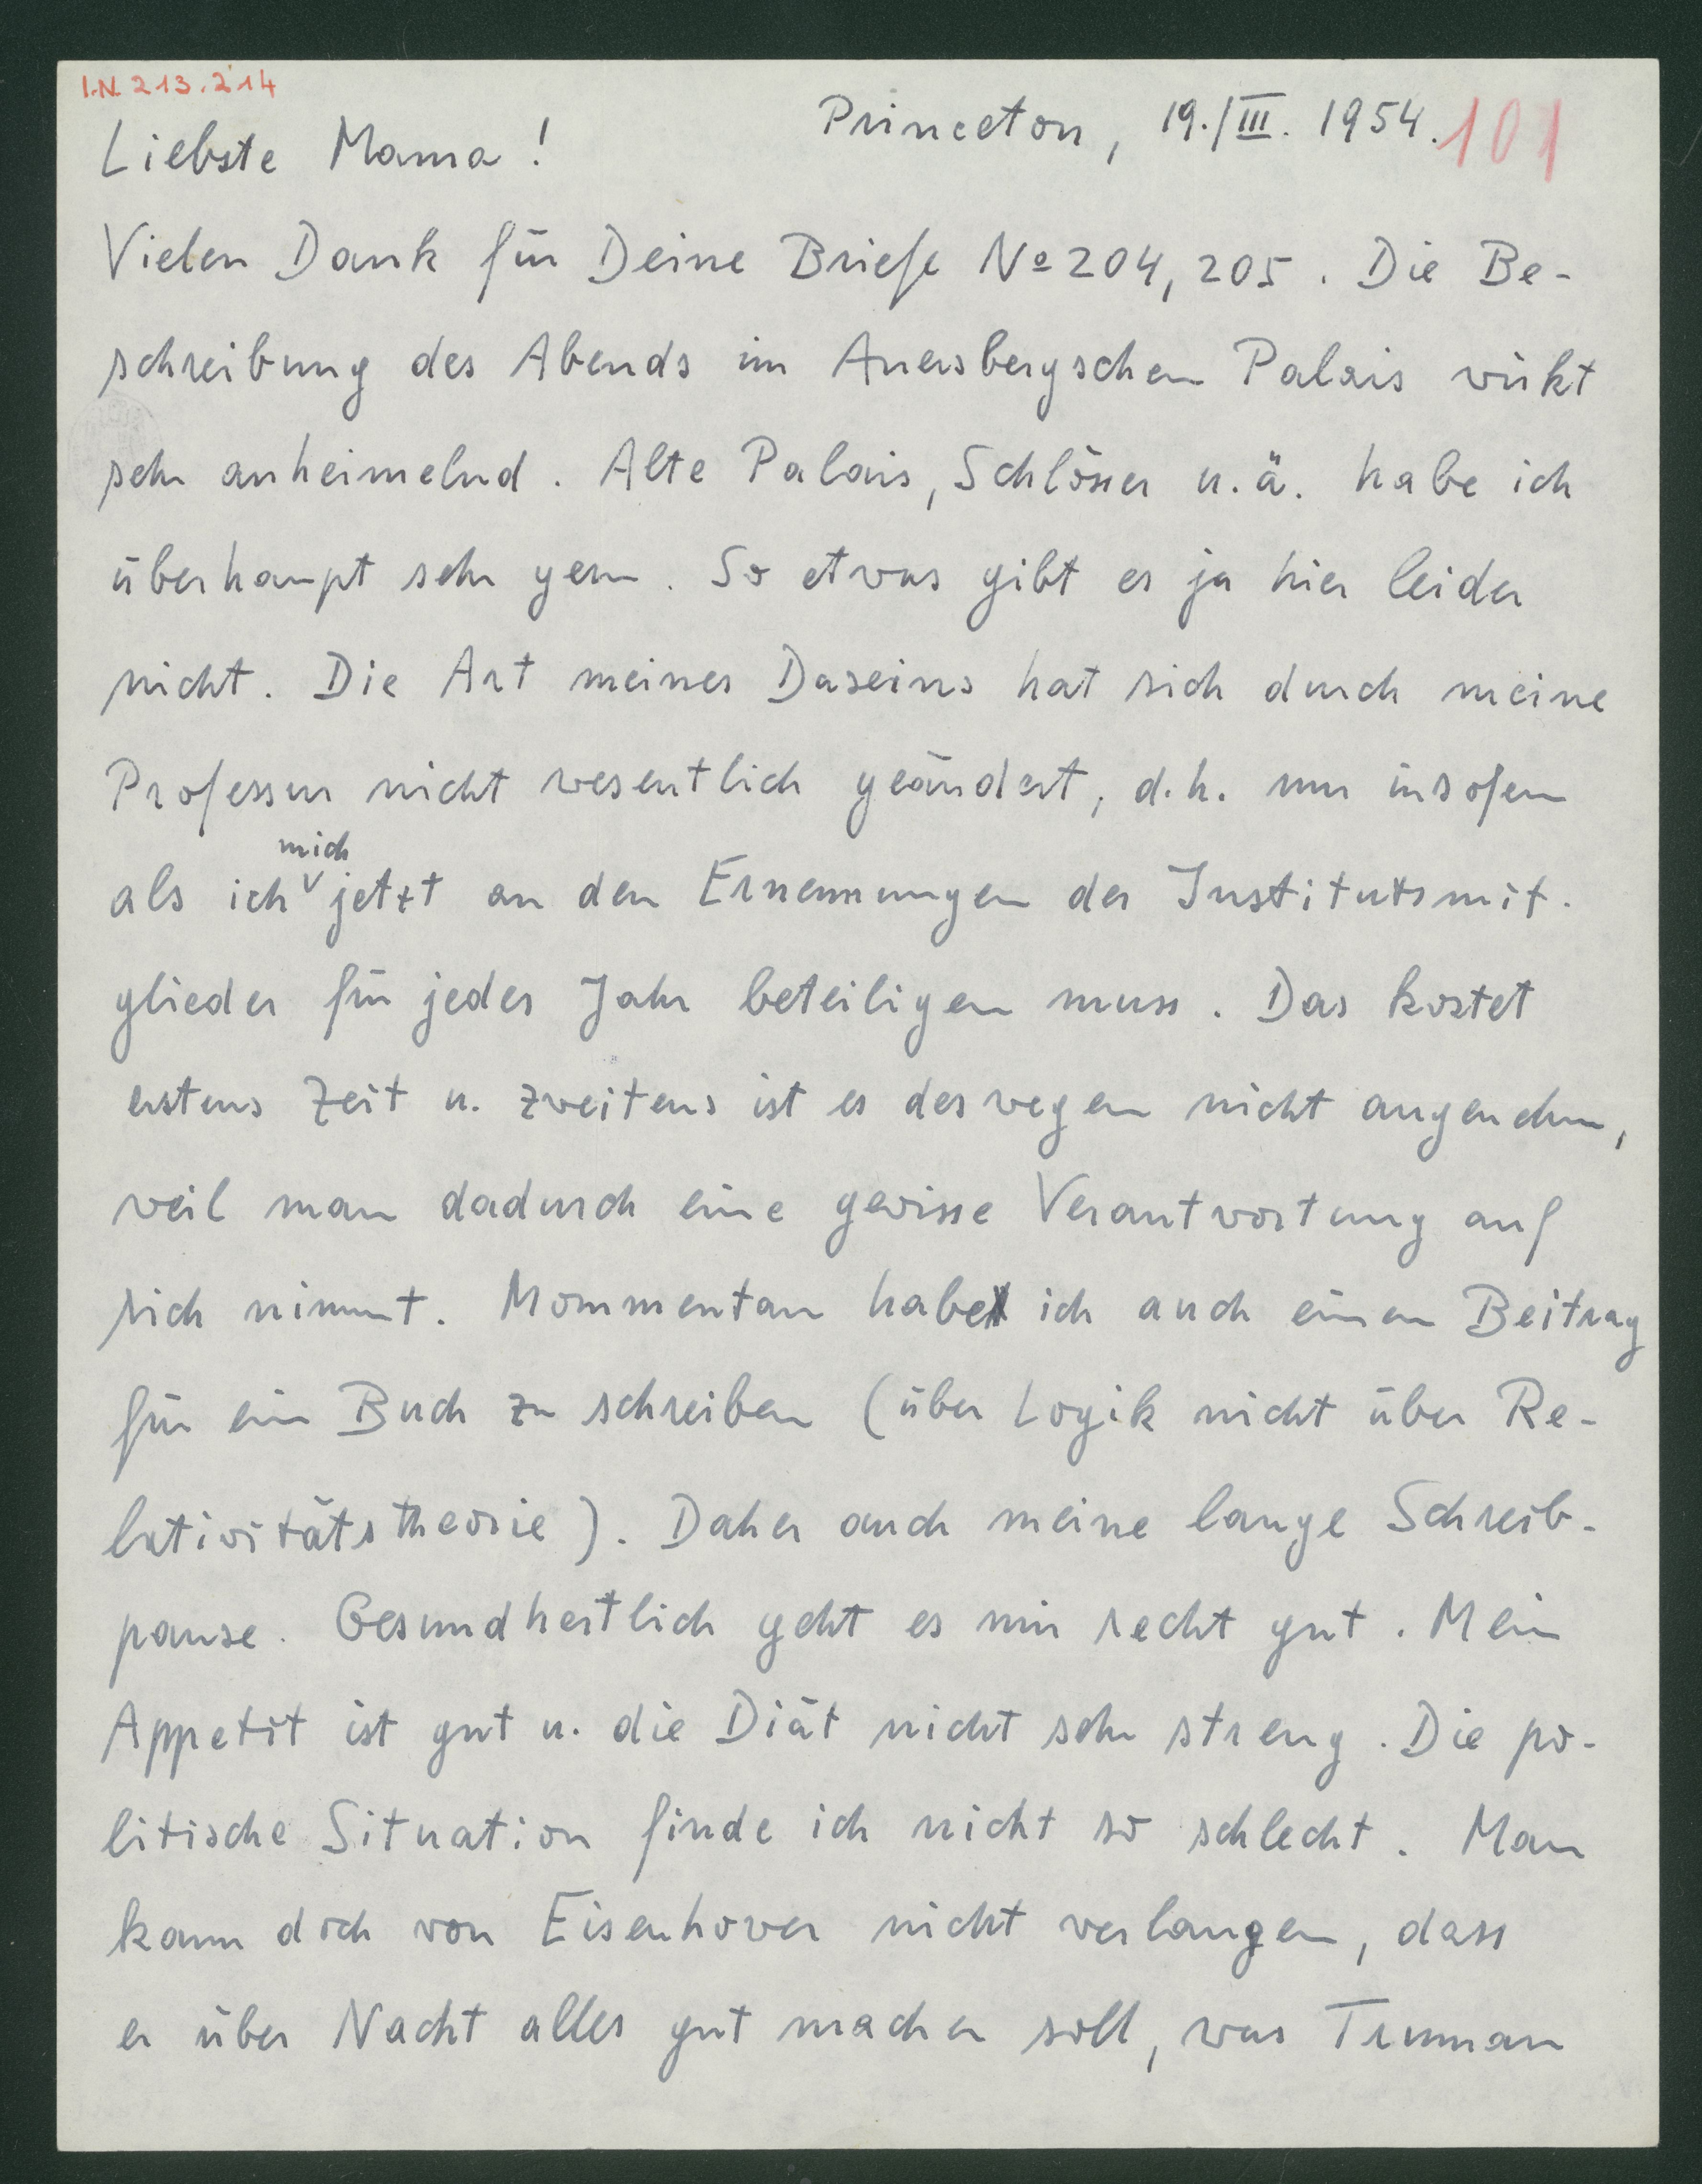 I.N. 213.214
Princeton, 19./III. 1954. 101
Liebste Mama!
Vielen Dank für Deine Briefe No 204, 205. Die Be-
schreibung des Abends im Auersbergschen Palais wirkt
sehr anheimelnd. Alte Palais, Schlösser u.ä. habe ich
überhaupt sehr gern. So etwas gibt es ja hier leider
nicht. Die Art meines Daseins hat sich durch meine
Professur nicht wesentlich geändert, d.h. nur insofern
als ich mich jetzt an den Ernennungen der Institutsmit-
glieder für jedes Jahr beteiligen muss. Das kostet
erstens Zeit u. zweitens ist es deswegen nicht angenehm,
weil man dadurch eine gewisse Verantwortung auf
sich nimmt. Mommentan habe ich auch einen Beitrag
für ein Buch zu schreiben (über Logik nicht über Re-
lativitätstheorie). Daher auch meine lange Schreib-
pause. Gesundheitlich geht es mir recht gut. Mein
Appetit ist gut u. die Diät nicht sehr streng. Die po-
litische Situation finde ich nicht so schlecht. Man
kann doch von Eisenhower nicht verlangen, dass
er über Nacht alles gut machen soll, was Truman